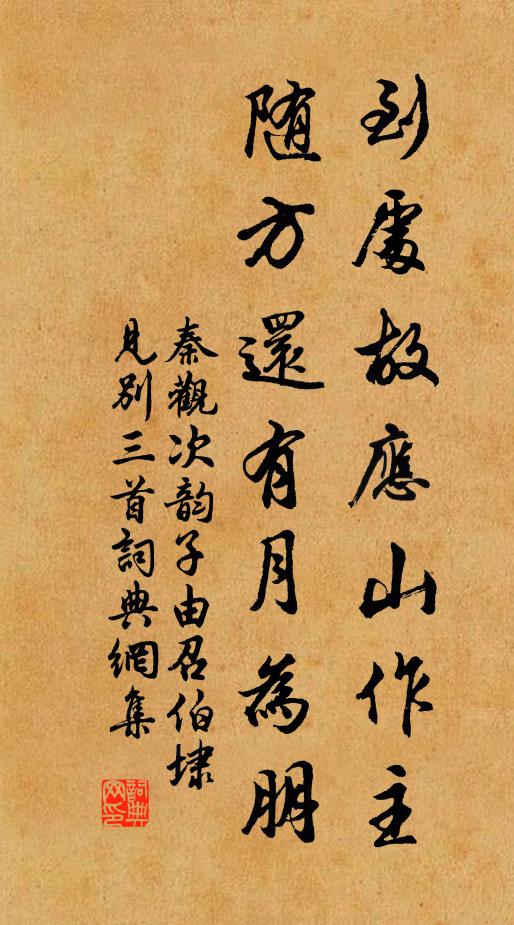 到處故應山作主
随方還有月為朋
秦觀次韵子由召伯埭
見別三首詞典網集
詞典网印